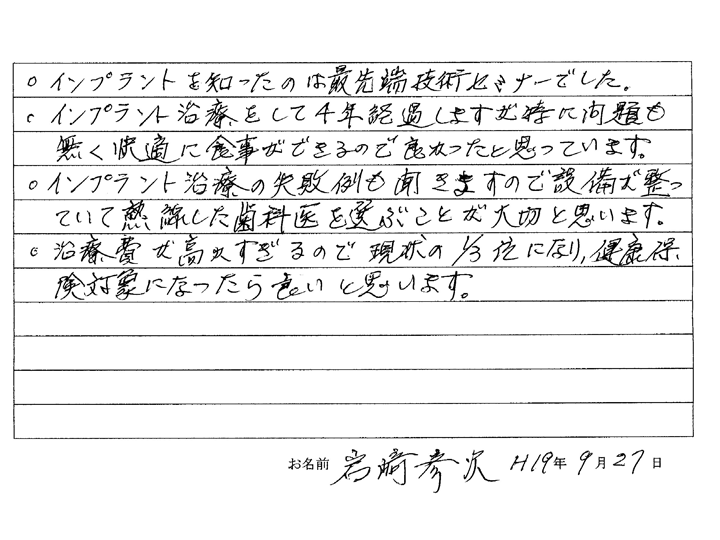 ○ インプラントを知ったのは最先端技術セミナーでした。
○ インプラント治療をして4年経過しますが特に問題も
無く快適に食事ができるので良かったと思っています。
○ インプラント治療の失敗例も聞きますので設備が整っ
ていて熟練した歯科医を選ぶことが大切と思います。
○ 治療費が高すぎるので現状の1/3位になり、健康保
険対象になったら良いと思います。
お名前 岩崎彦次 H19年9月27日